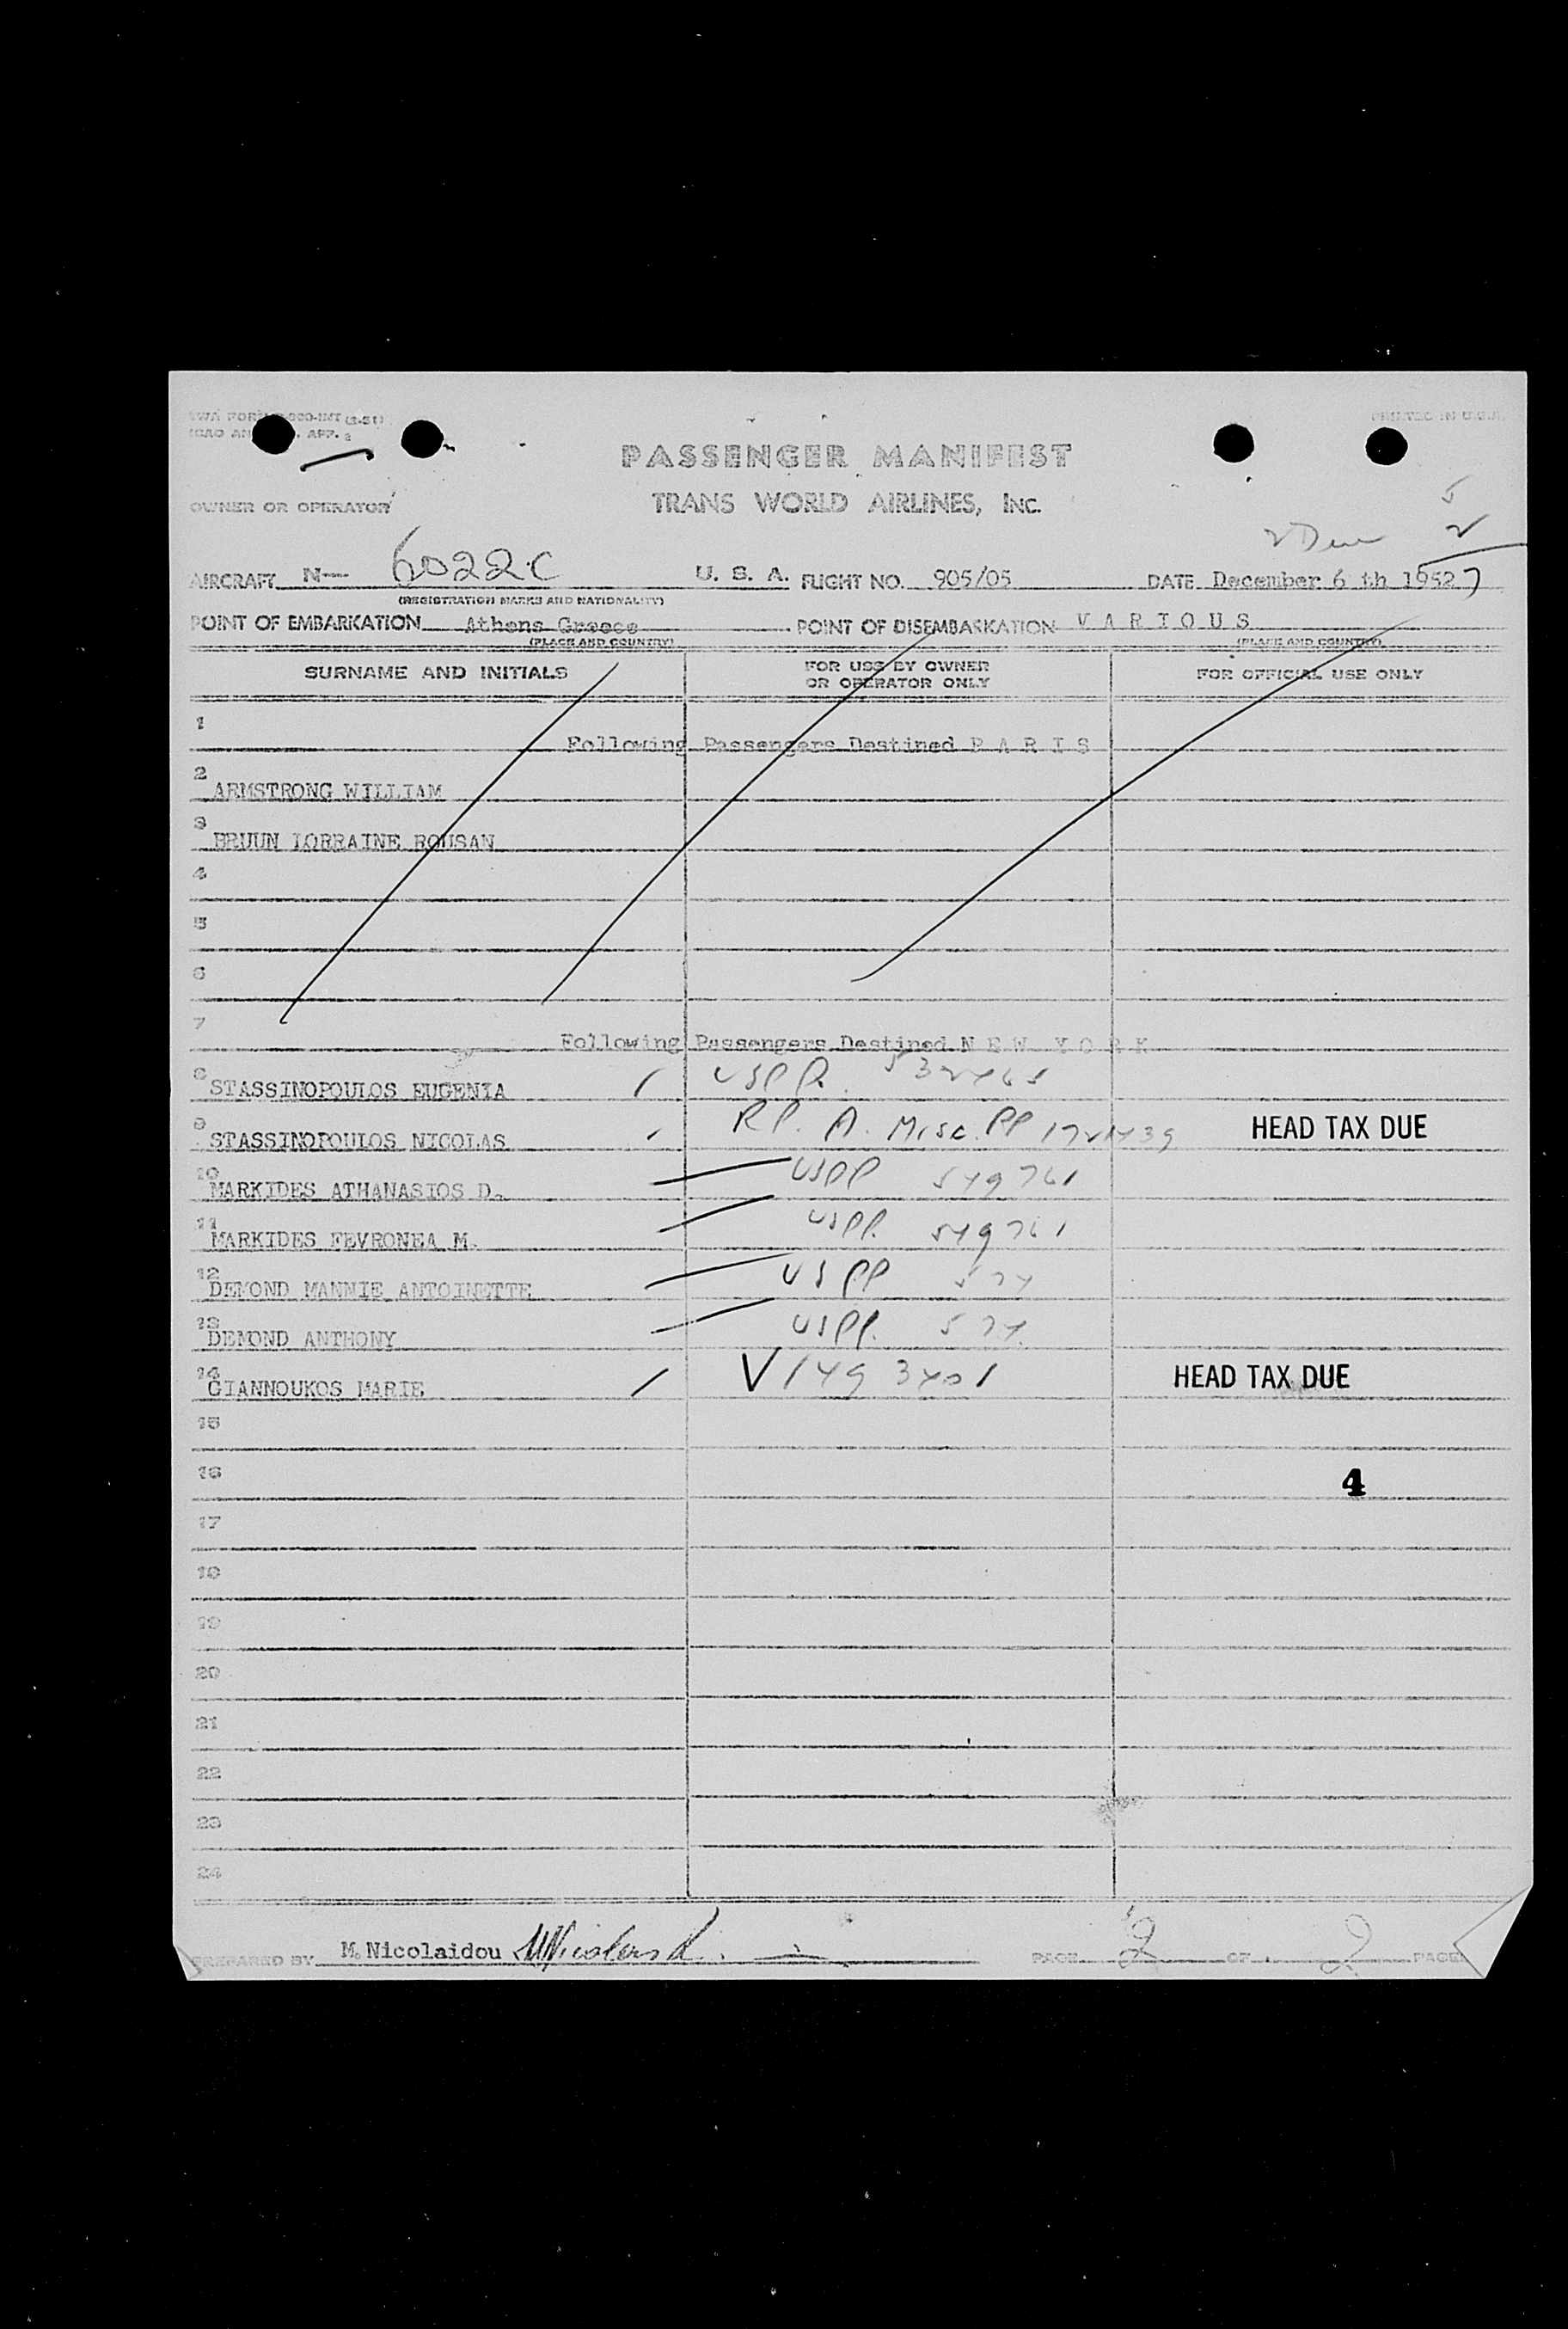 TWA FORM 900-INT (3-51)
PRINTED IN U.S.A.
ICAO AN APP. 2
PASSENGER MANIFEST
OWNER OR OPERATOR
TRANS WORLD AIRLINES, INC.
5
2
AIRCRAFT N— 6022C U. S. A. FLIGHT NO. 905/05 DATE December 6 th 1952
(REGISTRATION MARKS AND NATIONALITY)
POINT OF EMBARKATION Athens Greece POINT OF DISEMBARKATION V A R I O U S
(PLACE AND COUNTRY) (PLACE AND COUNTRY)
SURNAME AND INITIALS FOR USE BY OWNER OR OPERATOR ONLY FOR OFFICIAL USE ONLY
1 Following Passengers Destined P A R I S
2 ARMSTRONG WILLIAM
3 BRUUN LORRAINE ROUSAN
4
5
6
7 Following Passengers Destined N E W Y O R K
8 STASSINOPOULOS EUGENIA USPP.
9 STASSINOPOULOS NICOLAS RP. A. Misc. PP HEAD TAX DUE
10 MARKIDES ATHANASIOS D. USPP 549761
11 MARKIDES FEVRONEA M. USPP. 549761
12 DEMOND MANNIE ANTOINETTE USPP 574
13 DEMOND ANTHONY USPP. 574
14 GIANNOUKOS MARIE V 1493401 HEAD TAX DUE
15
16 4
17
18
19
20
21
22
23
24
PREPARED BY M. Nicolaidou PAGE 2 OF 2 PAGES